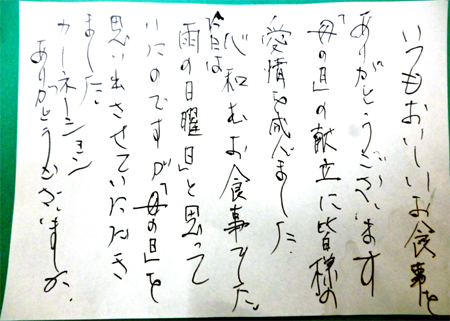 いつもおいしいお食事を
ありがとうございます
「母の日」の献立に皆様の
愛情を感じました
心和むお食事でした。
今日は
雨の日曜日」と思って
いたのですが「母の日」を
思い出させていただき
ました。
カーネーション
ありがとうございました。